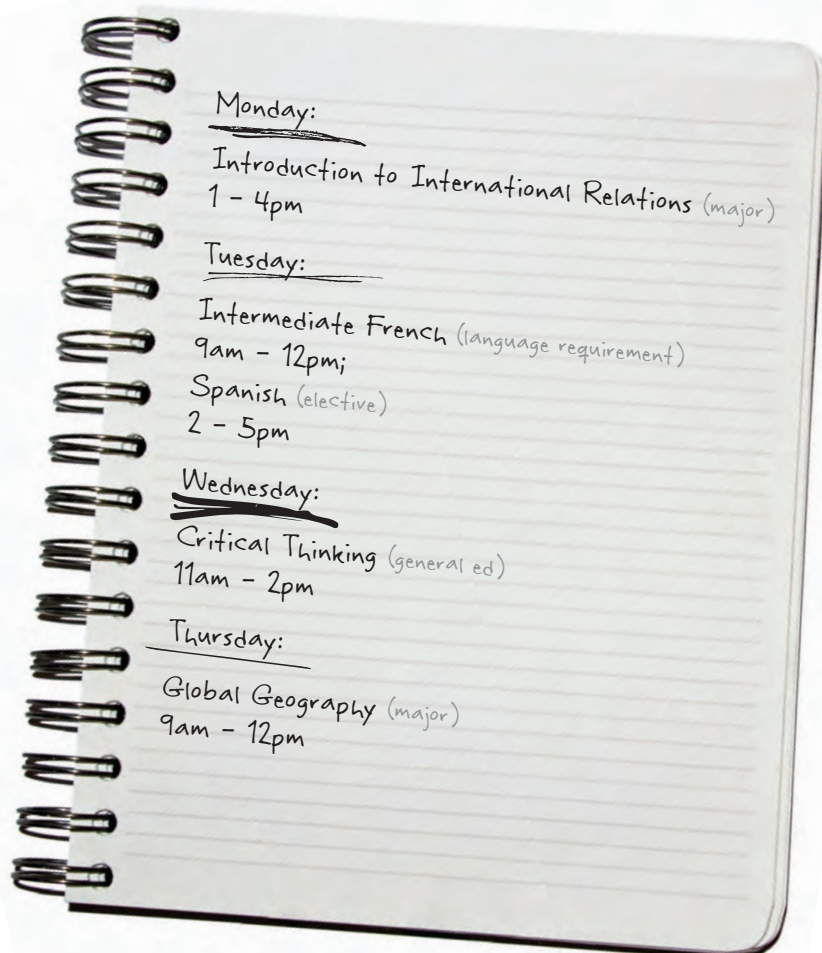 Monday:
Introduction to International Relations (major)
1 - 4pm
Tuesday:
Intermediate French (language requirement)
9am - 12pm;
Spanish (elective)
2 - 5pm
Wednesday:
Critical Thinking (general ed)
11am - 2pm
Thursday:
Global Geography (major)
9am - 12pm